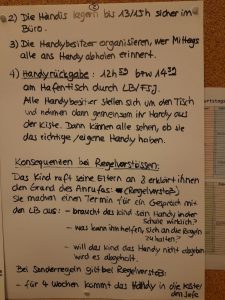 2) Die Handis lagern bis 13/15h sicher im
Büro.
3) Die Handybesitzer organisieren, wer Mittags
alle ans Handy abholen erinnert.
4) Handyrückgabe: 12h50 btw 14:30
am Hafentisch durch LB/FSJ.
Alle Handybesitzer stellen sich um den Tisch
und nehmen dann gemeinsam ihr Handy aus
der Kiste. Dann können alle sehen, ob sie
das richtige/eigene Handy haben.
Konsequenzen bei Regelverstössen:
Das Kind ruft seine Eltern an & erklärt ihnen
den Grund des Anrufes: (Regelverstoß)
Sie machen einen Termin für ein Gespräch mit
den LB aus: - braucht das Kind sein Handy in der
Schule wirklich?
- was kann ihm helfen, sich an die Regeln
zu halten?
- will das Kind das Handy nicht abgeben
wird es abgeholt.
Bei Sonderregeln gilt bei Regelverstoß:
- für 4 Wochen kommt das Handy in die Kiste/
den Safe